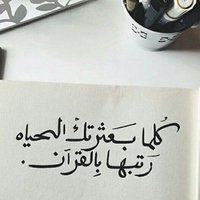 كلما بَعثرتكَ الحياه
رَتبها بِالقرآن.